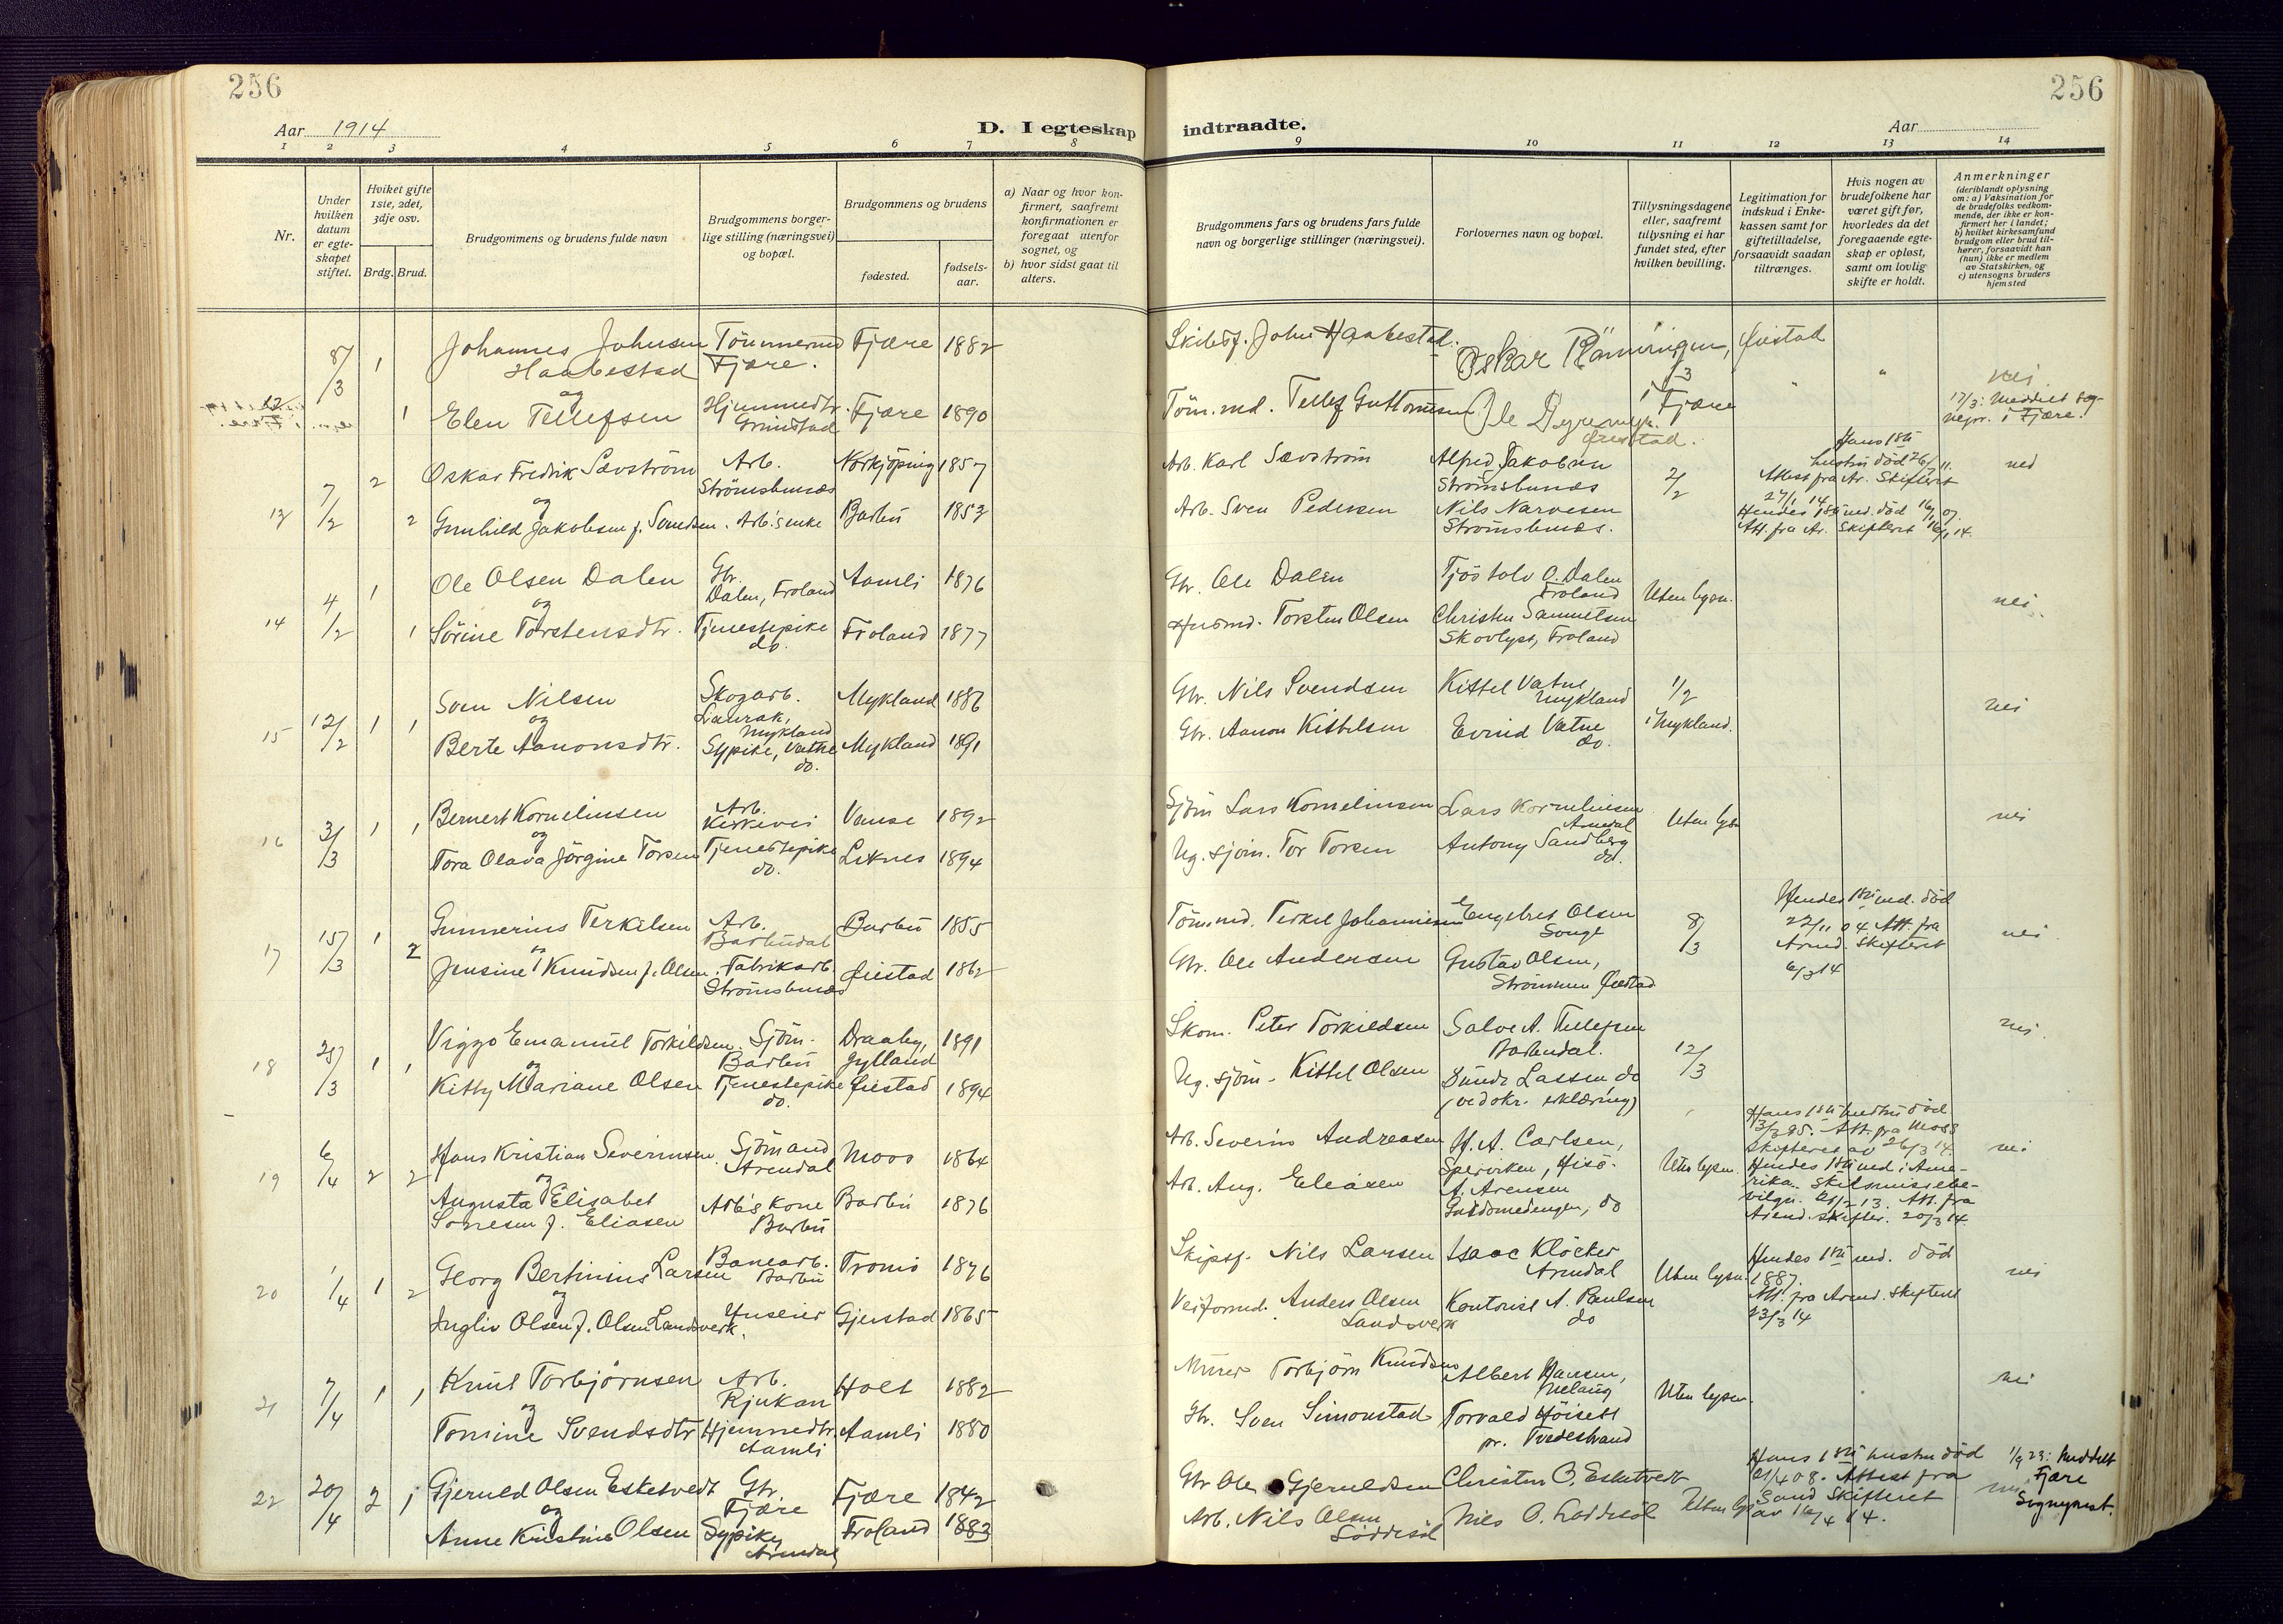 256
256
Aar 1914
D. I egteskap indtraadte.
Aar
1 2 3 4 5 6 7 8 9 10 11 12 13 14
Nr.
Under hvilken datum er egteskapet stiftet.
Hviket gifte 1ste, 2det, 3dje osv.
Brdg. Brud.
Brudgommens og brudens fulde navn
Brudgommens borgerlige stilling (næringsvei) og bopæl.
Brudgommens og brudens
fødested.
fødselsaar.
a) Naar og hvor konfirmert, saafremt konfirmationen er foregaat utenfor sognet, og
b) hvor sidst gaat til alters.
Brudgommens fars og brudens fars fulde navn og borgerlige stillinger (næringsvei).
Forlovernes navn og bopæl.
Tillysningsdagene eller, saafremt tillysning ei har fundet sted, efter hvilken bevilling.
Legitimation for indskud i Enkekassen samt for giftetilladelse, forsaavidt saadan tiltrænges.
Hvis nogen av brudefolkene har været gift før, hvorledes da det foregaaende egteskap er opløst, samt om lovlig skifte er holdt.
Anmerkninger
(deriblandt oplysning om: a) Vaksination for de brudefolks vedkommende, der ikke er konfirmert her i landet;
b) hvilket kirkesamfund brudgom eller brud tilhører, forsaavidt han (hun) ikke er medlem av Statskirken, og
c) utensogns bruders hjemsted
12 8/3 1 1
Johannes Johnsen Haabestad Tömmermd Fjære. Fjære 1882
og
Elen Tellefsen Hjemmedtr. Grimstad Fjære 1890
Skibsf. John Haabestad.
Oskar Rönningen, Øiestad
Töm.md. Tellef Guttormsen
Ole Dyremyr. Øiestad.
i Fjære
nei
17/3: Meddelt sognepr. i Fjære.
13 7/2 2 2
Oskar Fredrik Sævström Arb. Strömsbunæs Norkjöping 1857
og
Gunhild Jakobsen f. Svendsen. Arb's enke Barbu 1853
Arb. Karl Sævström
Alfred Jakobsen Strömsbunæs
Arb. Sven Pedersen
Nils Narvesen Strömsbunæs.
2/2
Hans 1ste hustru död 26/7 11.
Attest fra Ar. Skifteret 27/1 14
Hendes 1ste md. död 16/2 07.
Att. fra Ar. Skifteret 16/1 14.
14 4/2 1 1
Ole Olsen Dalen Gbr. Dalen, Froland Aamli 1876
og
Sörine Torstensdtr. Tjenestepike do. Froland 1877
Gbr. Ole Dalen
Tjöstolv O. Dalen Froland
Husmd. Torsten Olsen
Christen Samuelsen Skovlyst, Froland
Uten lysn.
nei
15 12/2 1 1
Sven Nilsen Skogarb. Laurak, Mykland Mykland 1886
og
Berte Aanonsdtr. Sypike, Vatne do. Mykland 1891
Gbr. Nils Svendsen
Kittel Vatne Mykland
Gbr. Aanon Kittelsen
Evind Vatne do.
1/2 i Mykland.
nei
16 3/3 1 1
Bernert Kornelinsen Arb. Kirkevei Vanse 1892
og
Tora Olava Jörgine Torsen Tjenestepike do. Liknes 1894
Sjöm Lars Kornelinsen
Lars Kornelinsen Arendal
Ug. sjöm. Tor Torsen
Antony Sandberg do.
Uten lysn
nei
17 15/3 1 2
Gunnerius Terkelsen Arb. Barbudal Barbu 1855
og
Jensine Knudsen f. Olsen. Fabrikarb. Strömsbunæs Øiestad 1862
Tömmd. Terkel Johannesen
Engebret Olsen Songe
Gbr. Ole Andersen
Gustav Olsen, Strömmen Øiestad
8/3
Hendes 1ste md. död 22/11 04 Att. fra Arend. Skifteret 6/3 14
nei
18 28/3 1 1
Viggo Emanuel Torkildsen. Sjöm. Barbu Draaby, Jylland 1891
og
Kitty Mariane Olsen Tjenestepike do. Øiestad 1894
Skom. Peter Torkildsen
Salve A. Tellefsen Barbudal.
Ug. sjöm. Kittel Olsen
Gunde Lassen, do (vedokr. erklæring)
12/3
nei
19 6/4 2 2
Hans Kristian Severinsen Sjömand Arendal Moss 1864
og
Augusta Elisabet Sörresen f. Eliasen Arb's kone Barbu Barbu 1876
Arb. Severin Andreasen
H. A. Carlsen, Hisö.
Arb. Aug. Eliasen
A. Arensen do
Uten lysn.
Hans 1ste hustru död 3/3 95. Att. fra Moss skifteret av 26/3 14.
Hendes 1ste md i Amerika. Skilsmissebevilgn. 13. Att. fra Arend. Skifter. 20/3 14.
nei
20 1/4 1 2
Georg Bertinius Larsen Banearb. Barbu Tromö 1876
og
Ingliv Olsen f. Olsen Landsverk. Huseier Gjerstad 1865
Skipsf. Nils Larsen
Isaac Klöcker Arendal
Veiformd. Anders Olsen Landsverk
Kontorist A. Paulsen do
Uten lysn.
Hendes 1ste md. död 1887.
Att. fra Arend. Skifteret 23/3 14
nei
21 7/4 1 1
Knut Torbjörnsen Arb. Rjukan Holt 1882
og
Tomine Svendsdtr Hjemmedtr. Aamli Aamli 1880
Murer Torbjörn Knudsen
Albert Hansen,
Gbr. Sven Simonstad
Torvald Höisett pr. Tvedestrand
Uten lysn.
nei
22 20/4 2 1
Gjeruld Olsen Esketvedt Gbr. Fjære Fjære 1842
og
Anne Kristine Olsen Sypike, Arendal Froland 1883
Gbr Ole Gjeruldsen
Christen O. Esketvedt
Arb. Nils Olsen Löddesöl
Nils O. Löddesöl
Uten lys
Hans 1ste hustru död 21/4 08. Attest fra Sand Skifteret av 16/4 14.
nei
1/9 23: Meddelt Fjære Sogneprest.